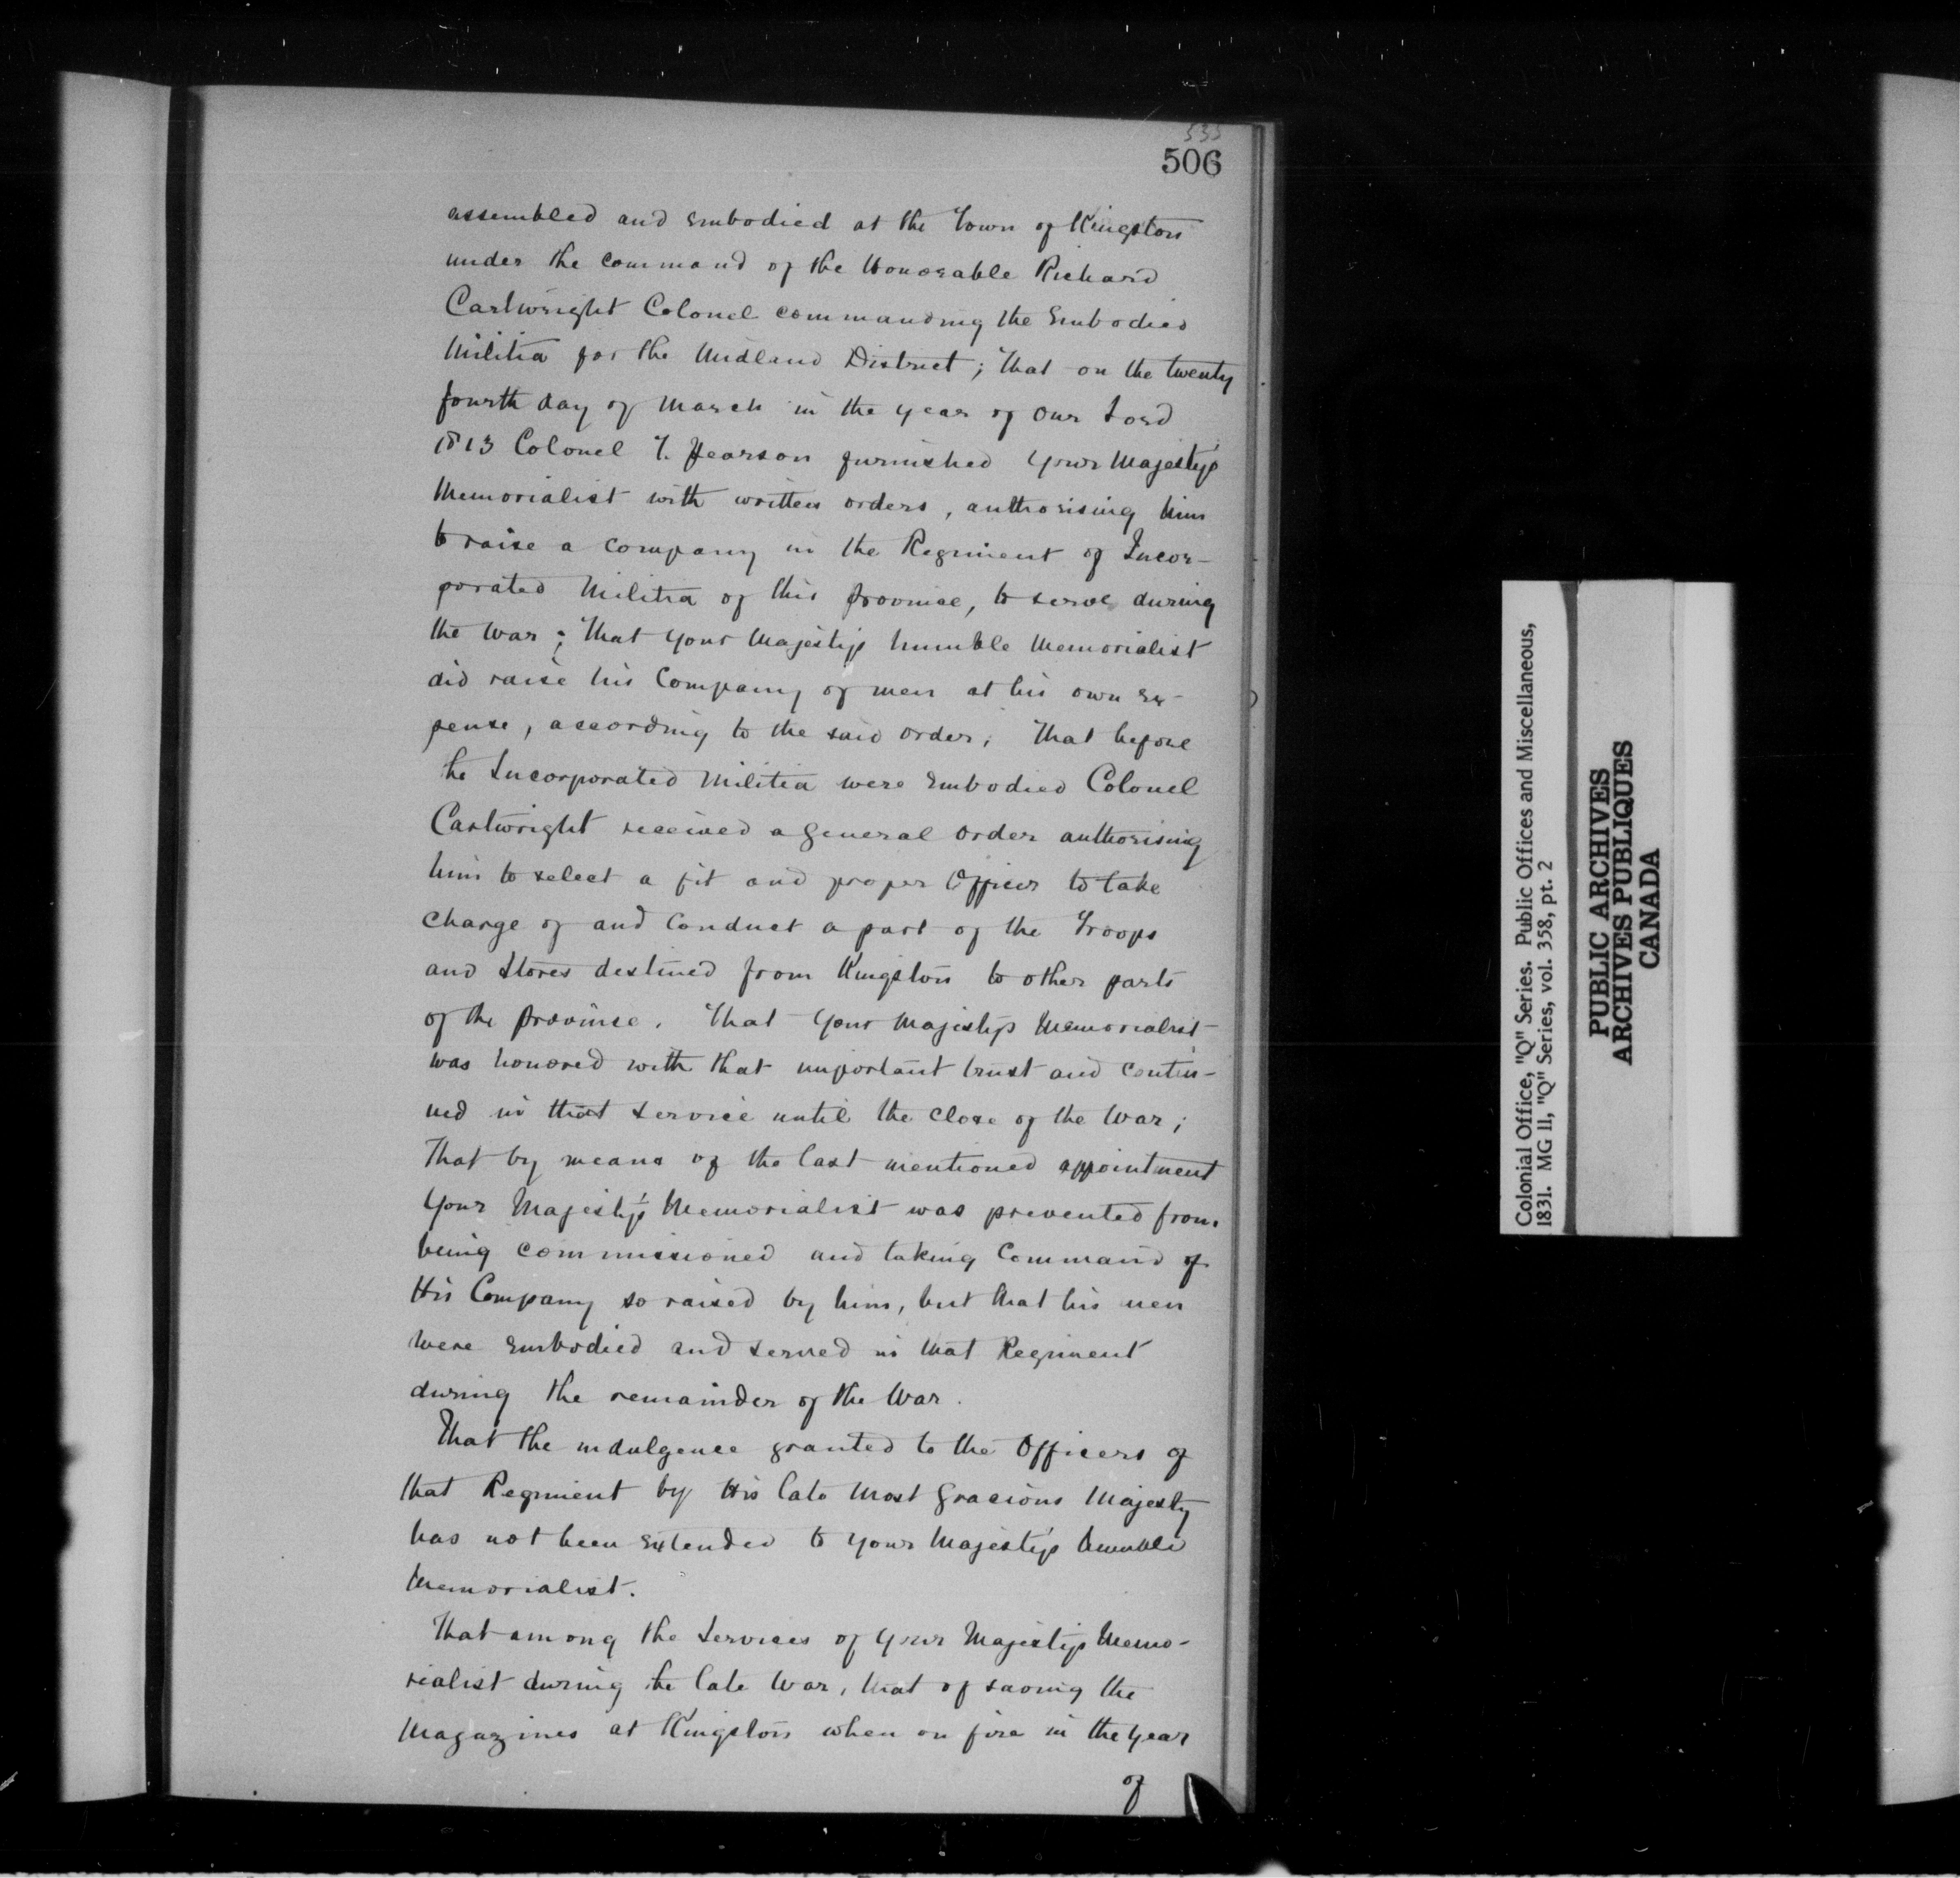 533
506
assembled and embodied at the Town of Kingston
under the command of the Honorable Richard
Cartwright Colonel commanding the Embodied
Militia for the Midland District; That on the twenty
fourth day of March in the year of Our Lord
1813 Colonel T. Pearson furnished Your Majesty's
Memorialist with written orders, authorising him
to raise a company in the Regiment of Incor-
porated Militia of this province, to serve during
the War; That Your Majestys humble Memorialist
did raise his Company of men at his own ex-
pense, according to the said order; That before
the Incorporated Militia were Embodied Colonel
Cartwright received a General Order authorising
him to select a fit and proper Officer to take
charge of and conduct a part of the Troops
and Stores destined from Kingston to other parts
of the province. That Your Majestys Memorialist
was honored with that important trust and contin-
ued in that service until the close of the War;
That by means of the last mentioned appointment
Your Majesty's Memorialist was prevented from
being commissioned and taking Command of
His Company so raised by him, but that his men
were Embodied and served in that Regiment
during the remainder of the War.
That the indulgence granted to the Officers of
that Regiment by His late Most Gracious Majesty
has not been Extended to Your Majesty's humble
Memorialist.
That among the Services of Your Majestys Memo-
rialist during the late War, that of saving the
Magazines at Kingston when on fire in the Year
of
Colonial Office, "Q" Series. Public Offices and Miscellaneous,
1831. MG 11, "Q" Series, vol. 358, pt. 2
PUBLIC ARCHIVES
ARCHIVES PUBLIQUES
CANADA